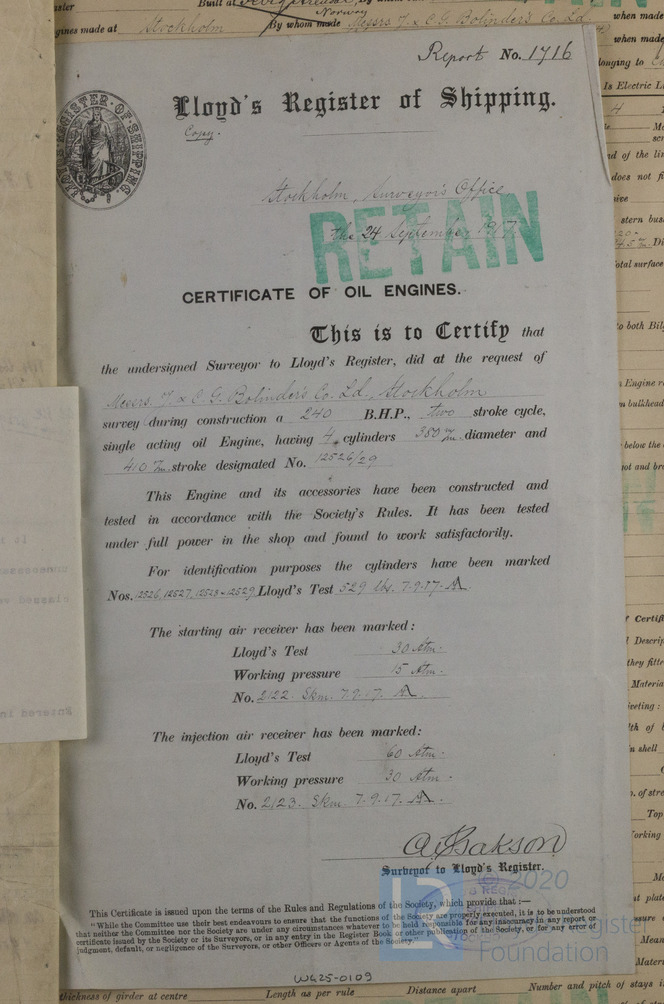 Built at
By whom made Messrs J. & C. G. Bolinder's Co. Ld.
when made
Engines made at Stockholm
when made
Report No. 1716
Lloyd's Register of Shipping.
Copy.
LLOYD'S REGISTER OF SHIPPING
Stockholm, Surveyor's Office,
the 24 September 1917.
RETAIN
CERTIFICATE OF OIL ENGINES.
This is to Certify that
the undersigned Surveyor to Lloyd's Register, did at the request of
Messrs. J. & C. G. Bolinder's Co. Ld., Stockholm
survey during construction a 240 B.H.P., two stroke cycle,
single acting oil Engine, having 4 cylinders 380 m/m diameter and
410 m/m stroke designated No. 12526/29
This Engine and its accessories have been constructed and
tested in accordance with the Society's Rules. It has been tested
under full power in the shop and found to work satisfactorily.
For identification purposes the cylinders have been marked
Nos. 12526, 12527, 12528 - 12529 Lloyd's Test 529 lbs. 7.9.17.
The starting air receiver has been marked:
Lloyd's Test 30 Atm.
Working pressure 15 Atm.
No. 2122. Skm. 7.9.17.
The injection air receiver has been marked:
Lloyd's Test 60 Atm.
Working pressure 30 Atm.
No. 2123. Skm. 7.9.17.
Surveyor to Lloyd's Register.
© 2020
Lloyd's Register
Foundation
This Certificate is issued upon the terms of the Rules and Regulations of the Society, which provide that :—
"While the Committee use their best endeavours to ensure that the functions of the Society are properly executed, it is to be understood
that neither the Committee nor the Society are under any circumstances whatever to be held responsible for any inaccuracy in any report or
certificate issued by the Society or its Surveyors, or in any entry in the Register Book or other publication of the Society, or for any error of
judgment, default, or negligence of the Surveyors, or other Officers or Agents of the Society."
W625-0109
thickness of girder at centre
Length as per rule
Distance apart
Number and pitch of stays in